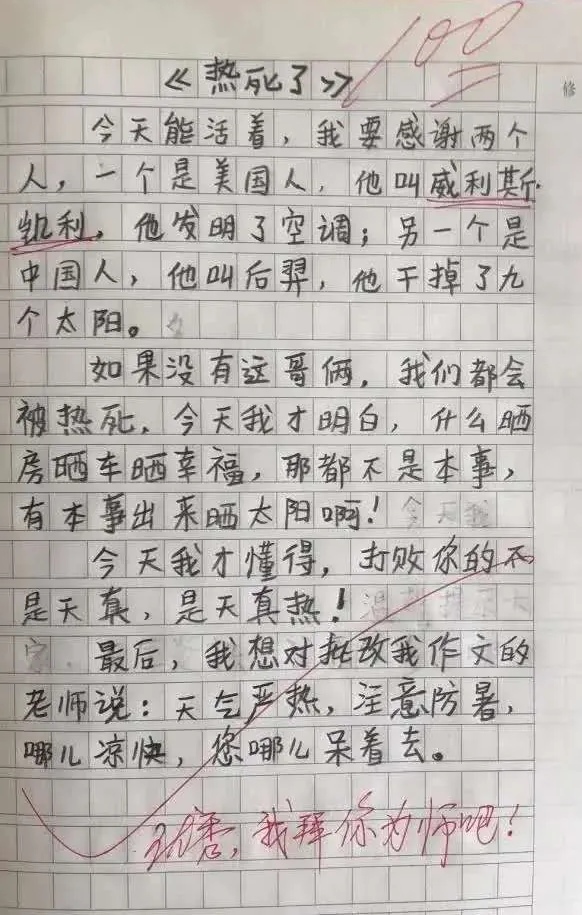 100
修
《热死了》
今天能活着，我要感谢两个
人，一个是美国人，他叫威利斯·
凯利，他发明了空调；另一个是
中国人，他叫后羿，他干掉了九
个太阳。
如果没有这哥俩，我们都会
被热死，今天我才明白，什么晒
房晒车晒幸福，那都不是本事，
有本事出来晒太阳啊！
今天我才懂得，打败你的不
是天真，是天真热！
最后，我想对批改我作文的
老师说：天气严热，注意防暑，
哪儿凉快，您哪儿呆着去。
我拜你为师吧！